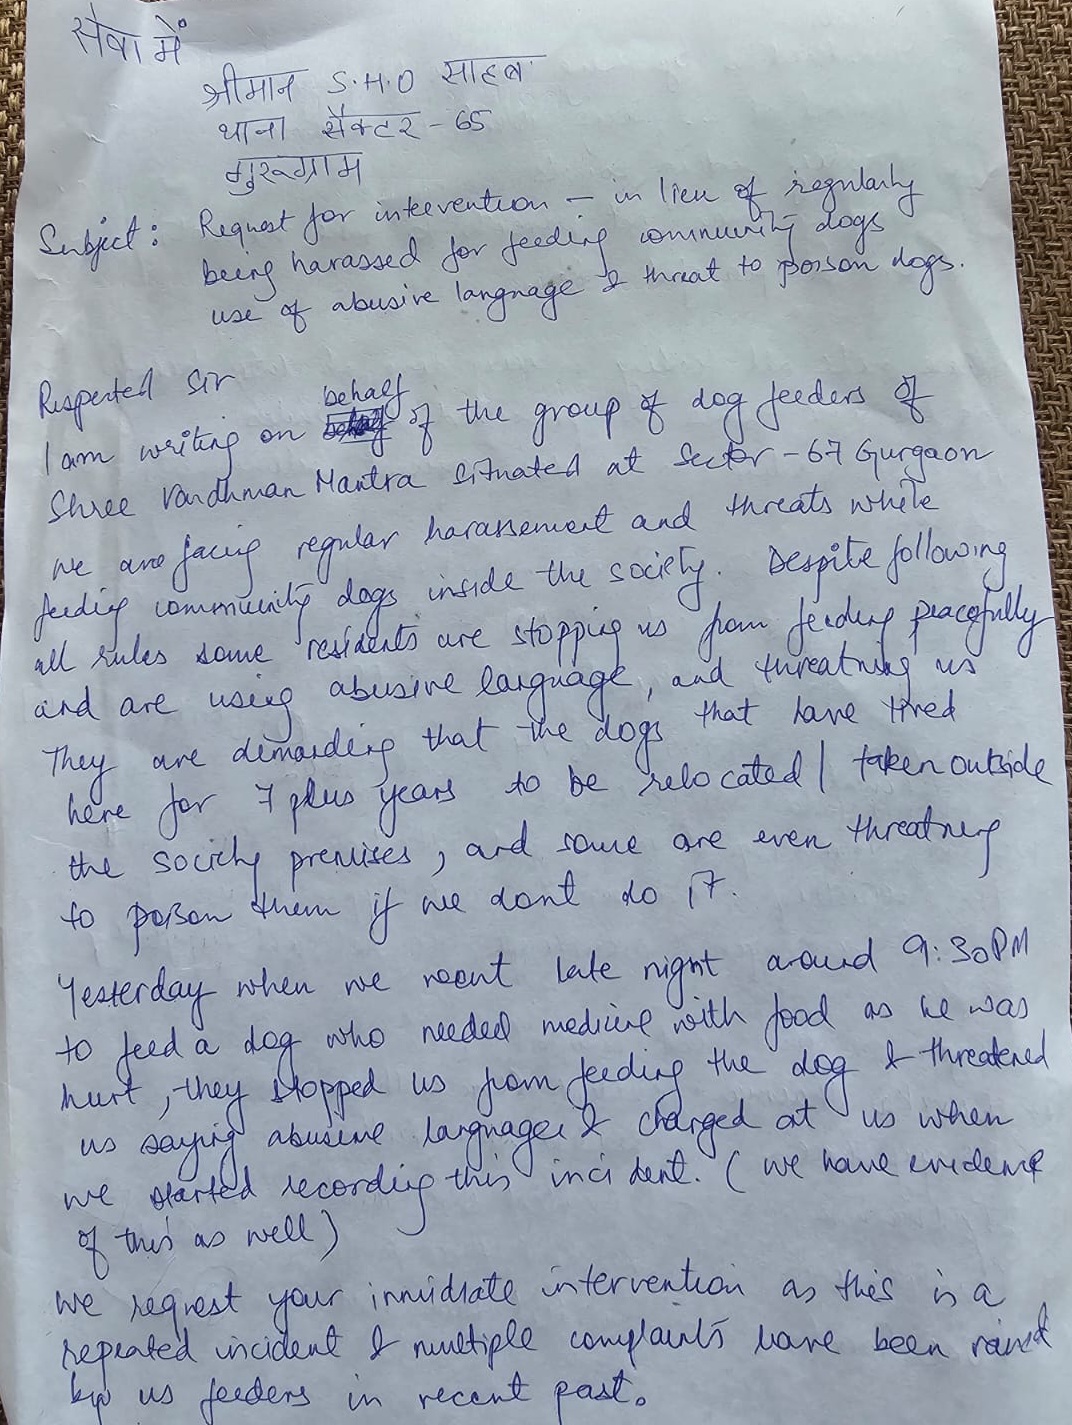 सेवा में
श्रीमान S.H.O साहब
थाना सैक्टर - 65
गुरूग्राम
Subject: Request for intervention – in lieu of regularly
being harassed for feeding community dogs
use of abusive language & threat to poison dogs.
Respected Sir
behalf
I am writing on of the group of dog feeders of
Shree Vardhman Mantra situated at Sector - 67 Gurgaon
we are facing regular harassement and threats while
feedig community dogs inside the society. Despite following
all rules some residents are stopping us from feeding peacefully
and are using abusive language, and threatning us
They are demanding that the dogs that have lived
here for 7 plus years to be relocated / taken outside
the society premises, and some are even threatning
to poison them if we dont do it.
Yesterday when we went late night around 9:30PM
to feed a dog who needed medicine with food as he was
hurt, they stopped us from feeding the dog & threatened
us saying abusive language & charged at us when
we started recording this incident. (we have evidence
of this as well)
We request your immidiate intervention as this is a
repeated incident & multiple complaints have been raised
by us feeders in recent past.